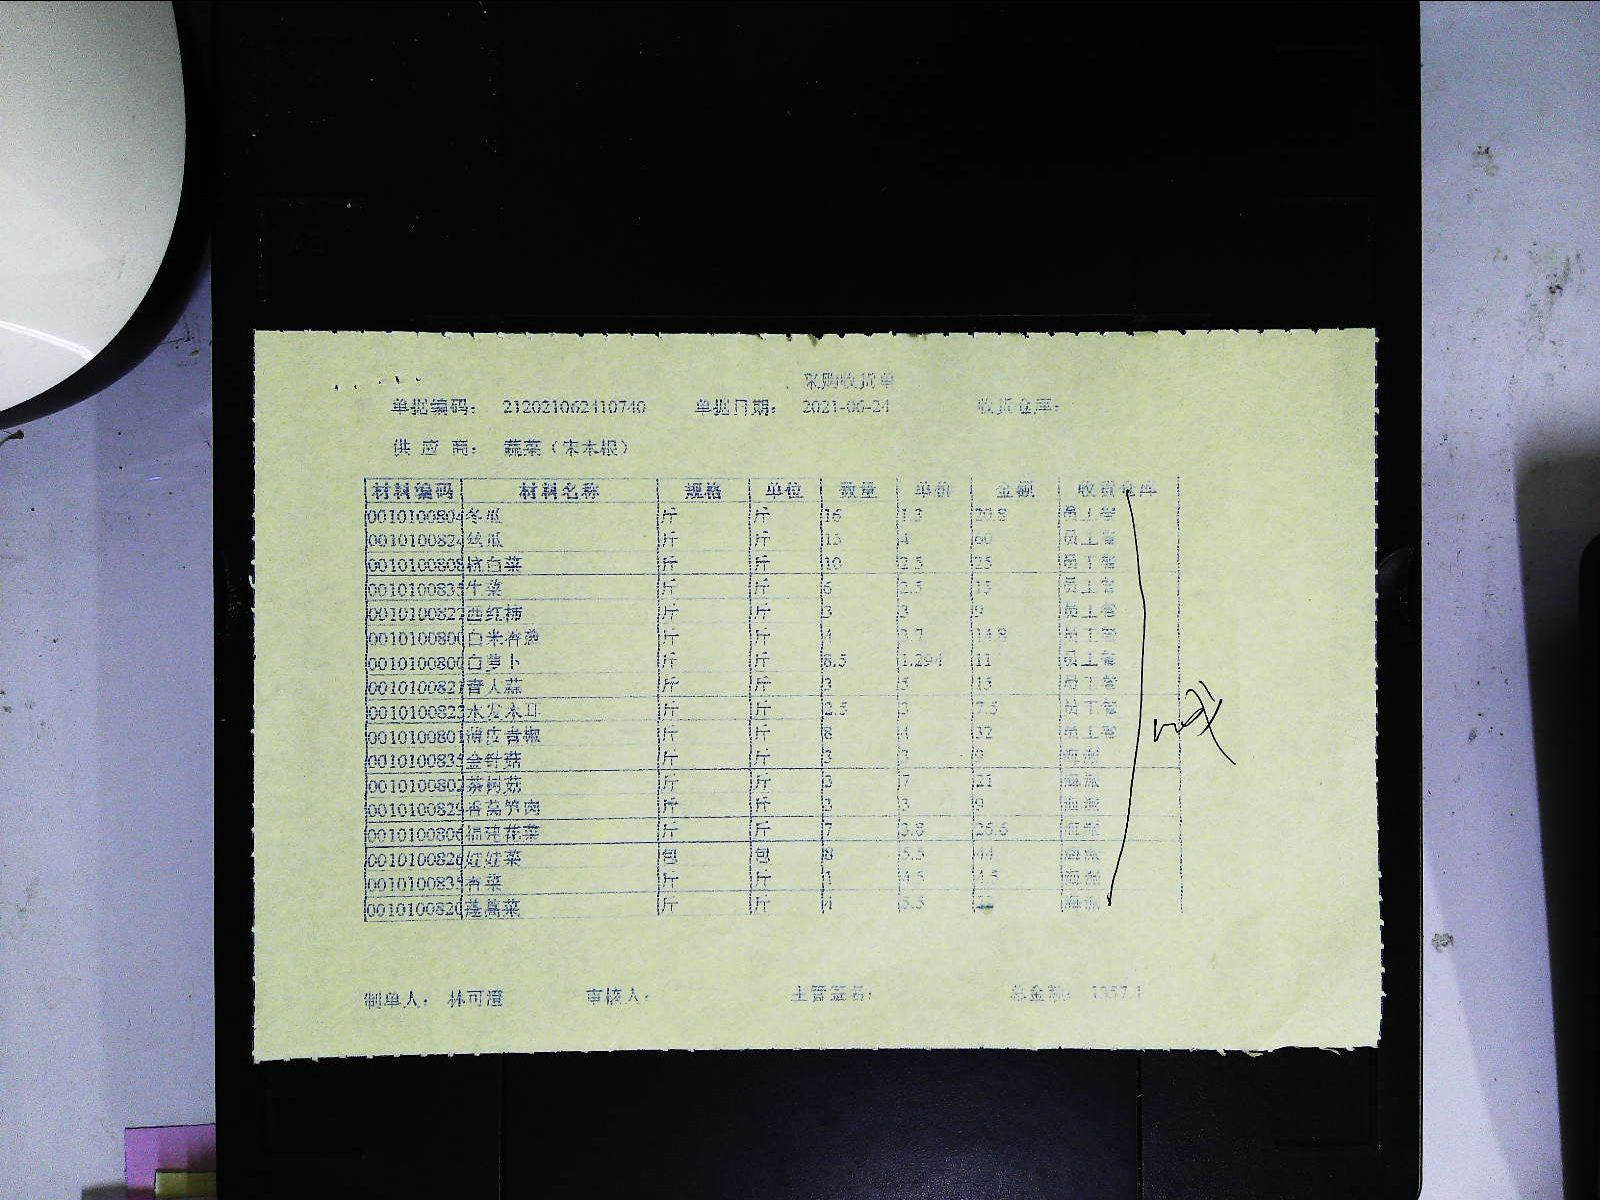 采购收货单
单据编码： 212021062410740 单据日期： 2021-06-24 收货仓库：
供 应 商： 蔬菜（宋本根）
材料编码 材料名称 规格 单位 数量 单价 金额 收货仓库
0010100804 冬瓜 斤 斤 16 1.3 20.8 员工餐
0010100824 丝瓜 斤 斤 15 4 60 员工餐
0010100808 杭白菜 斤 斤 10 2.5 25 员工餐
0010100835 生菜 斤 斤 6 2.5 15 员工餐
0010100827 西红柿 斤 斤 3 3 9 员工餐
0010100800 白米香葱 斤 斤 4 3.7 14.8 员工餐
0010100800 白萝卜 斤 斤 8.5 1.294 11 员工餐
0010100821 斤 斤 3 5 15 员工餐
0010100822 水发木耳 斤 斤 2.5 3 7.5 员工餐
0010100801 薄皮青椒 斤 斤 8 4 32 员工餐
0010100835 金针菇 斤 斤 3 3 9 海派
0010100802 茶树菇 斤 斤 3 7 21 海派
0010100825 香莴笋肉 斤 斤 3 3 9 海派
0010100806 福建花菜 斤 斤 7 3.8 26.6 海派
0010100826 娃娃菜 包 包 8 5.5 44 海派
0010100835 香菜 斤 斤 1 4.5 4.5 海派
0010100820 蓬蒿菜 斤 斤 4 5.5 22 海派
制单人： 林可澄 审核人： 主管签名： 总金额： 1357.1